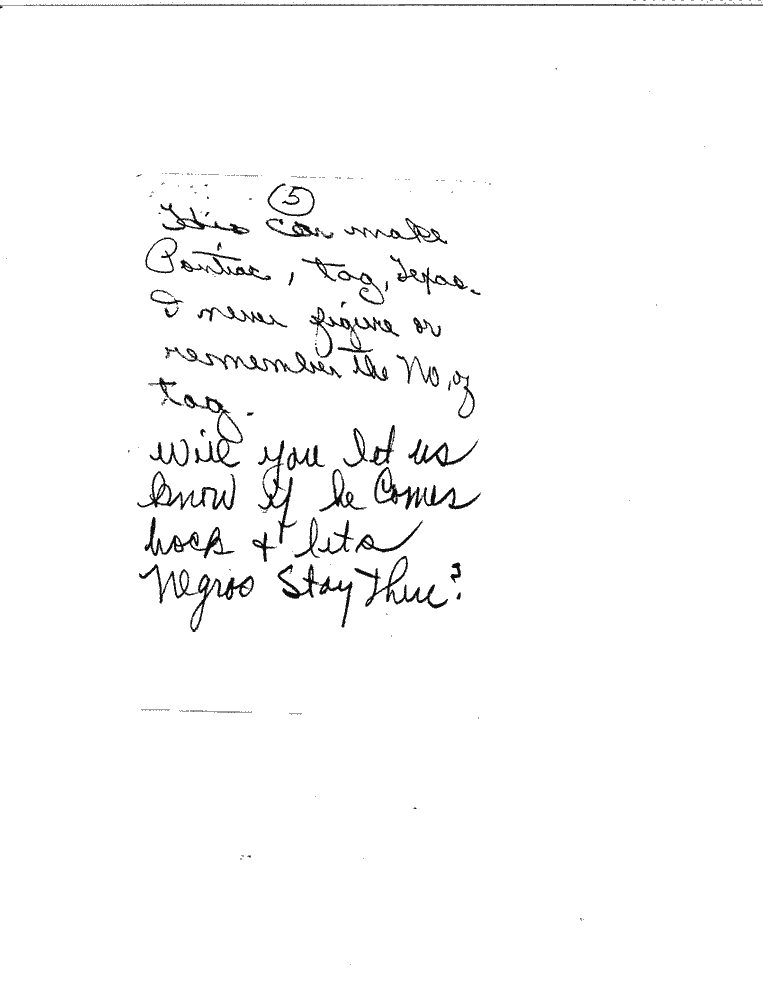 5
His car make
Pontiac, tag, Texas.
I never figure or
remember the No. of
tag.
Will you let us
know if he comes
back & lets
Negroo stay there?